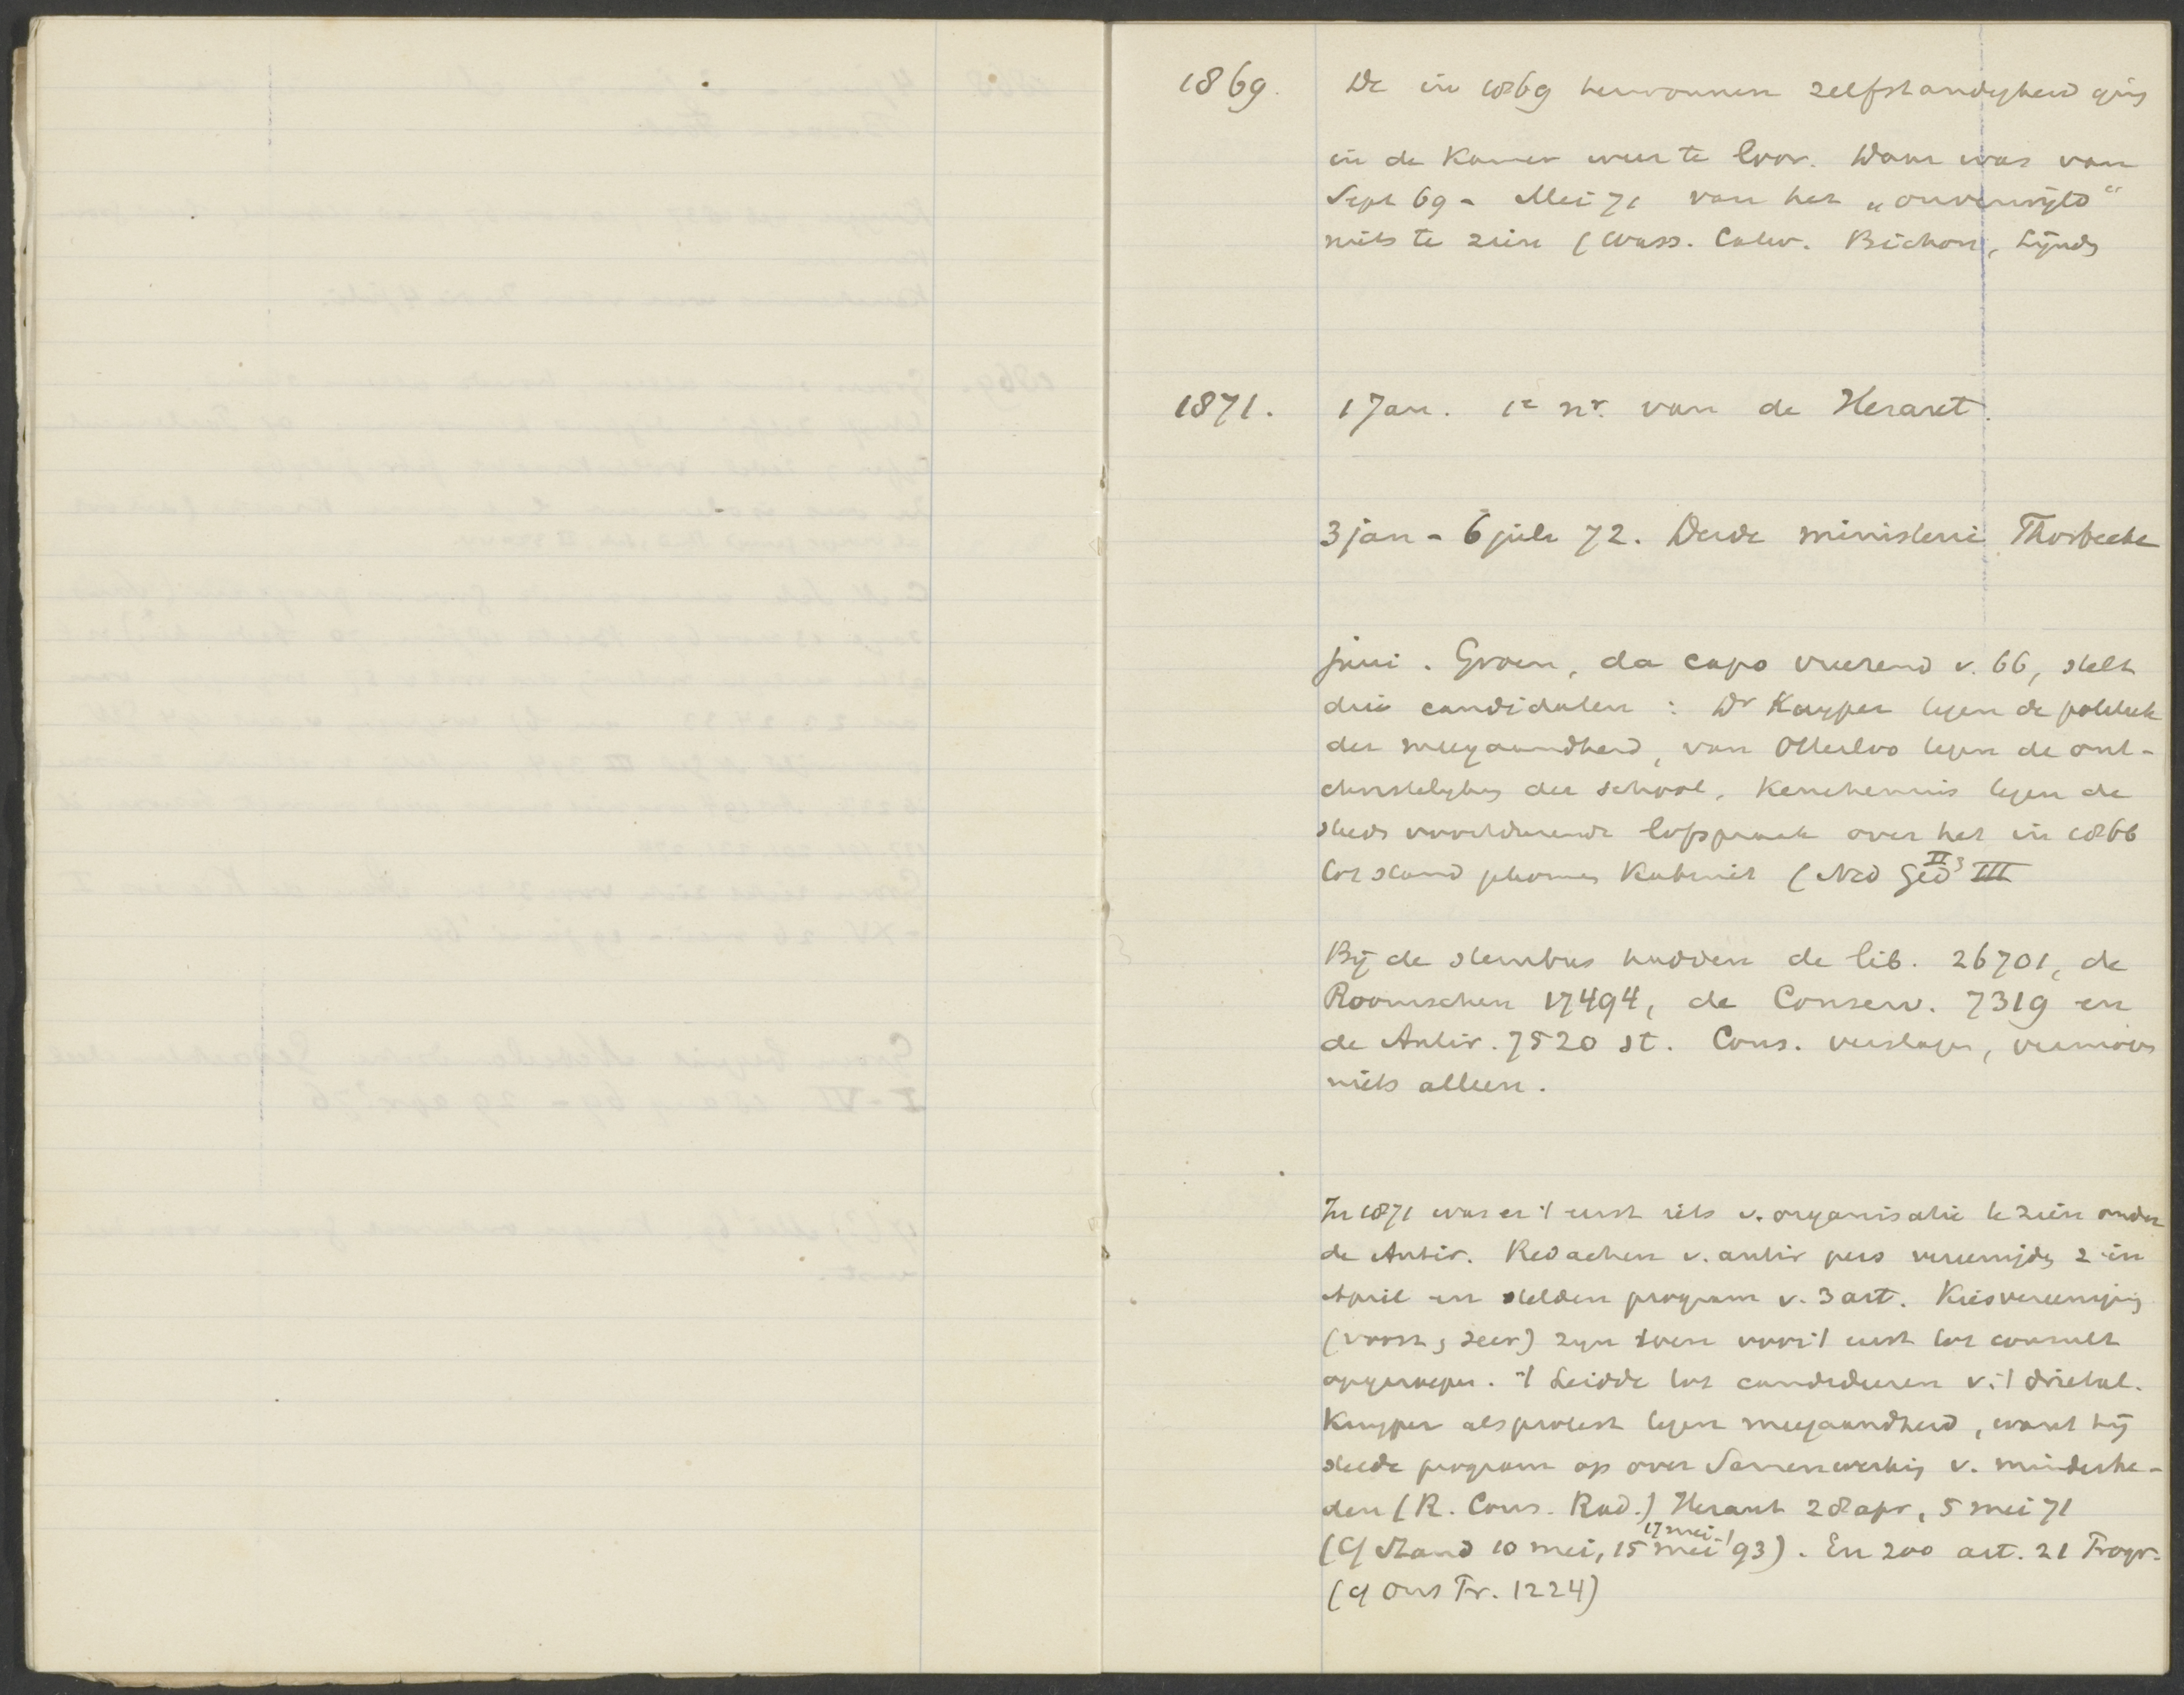 1869. De in 1869 herwonnen zelfstandigheid ging
in de Kamer weer te loor. Daar was van
Sept 69 - Mei 71 van het „onvermijld“
niets te zien (Wass. Calw. Bichon, Lijnds
1871. 1 Jan. 1e nr. van de Heraut.
3 jan - 6 juli 72. Derde ministerie Thorbecke
juni. Groen, da capo vreezend v. 66, stelt
drie candidaten: Dr Kuyper tegen de politiek
der meegaandheid, van Otterloo tegen de ont-
christelijking der school, Keuchenius tegen de
steeds voortdurende lofspraak over het in 1866
tot stand gekomen Kabinet (Ned Ged II 3 III
Bij de stembus hadden de lib. 26701, de
Roomschen 17494, de Conserv. 7319 en
de Antir. 7520 st. Cons. verslagen, vermoes
niets alleen.
In 1871 was er 't eerst iets v. organisatie te zien onder
de Antir. Redacteuren v. antir pers vereenigde z in
April en stelden program v. 3 art. Kiesvereenigings
(voorz, secr) zijn toen voor 't eerst tot consult
opgeroepen. 't Leidde tot candideeren v. 't drietal.
Kuyper als protest tegen meegaandheid, want hij
stelde program op over Samenwerking v. minderhe-
den (R. Cons. Rad.) Heraut 28 apr, 5 mei 71
(Cf Stand 10 mei, 15 mei 17 mei '93). En zoo art. 21 Progr.
(cf Ons Pr. 1224)